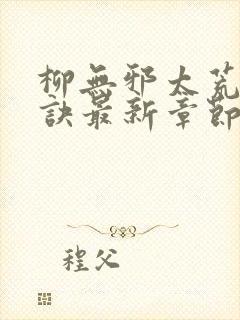 柳無邪太荒
訣最新章節
程父